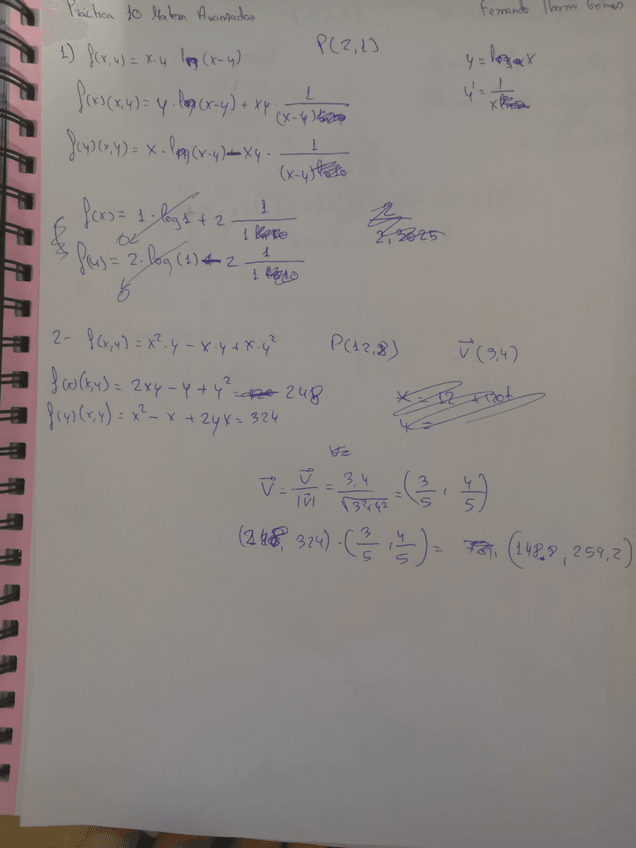 Práctica 10 Matem Avanzadas Fernando
1) f(x,y) = x·y · log(x-y) P(2,1) y = log x
f(x)(x,y) = y · log(x-y) + xy · 1/(x-y) y' = 1/x
f(y)(x,y) = x · log(x-y) - xy · 1/(x-y)
f(x) = 1 · log 1 + 2 1/1
0
f(y) = 2 · log(1) - 2 1/1
0
2- f(x,y) = x²·y - x·y + x·y² P(12,8) V⃗(3,4)
f(x)(x,y) = 2xy - y + y² = 248
f(y)(x,y) = x² - x + 2yx = 324
V⃗ = V⃗/|V⃗| = 3,4/√3²+4² = (3/5, 4/5)
(248, 324) · (3/5, 4/5) = (148,8, 259,2)